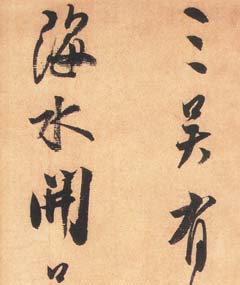 三吴有
海水開